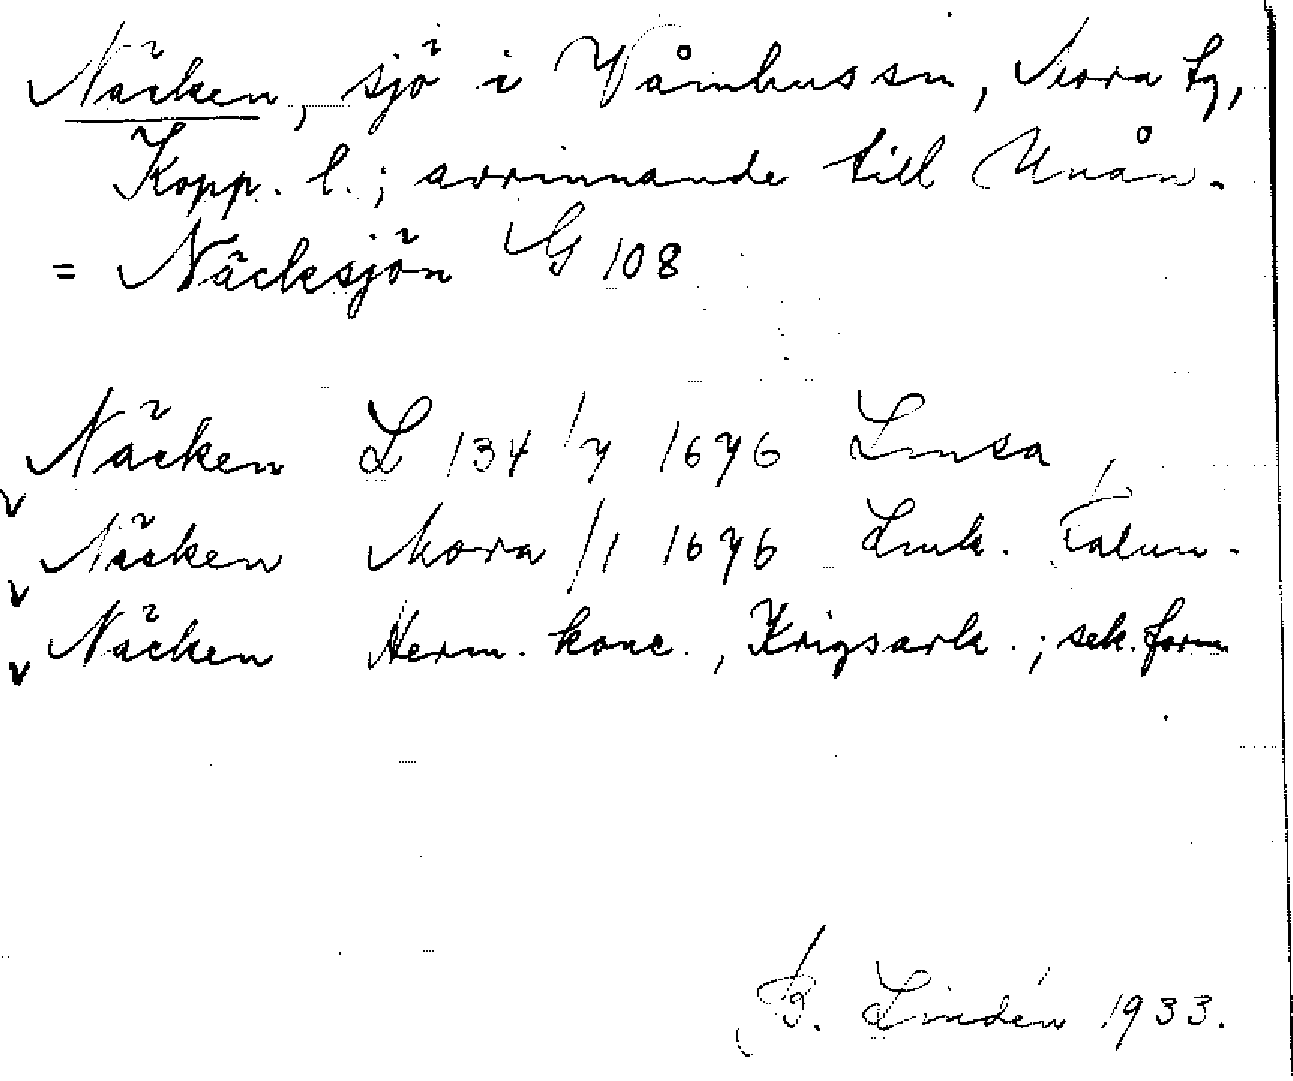 Näcken, sjö i Våmhus sn, Mora tg,
Kopp. l.; avrinnande till Unån.
= Näcksjön G 108
Näcken L 134 1/7 1676 Lmsa
v Näcken Mora 1/1 1676 Lmk. Falun.
v Näcken Herm. konc., Krigsark.; sek. form
v
B. Lindén 1933.